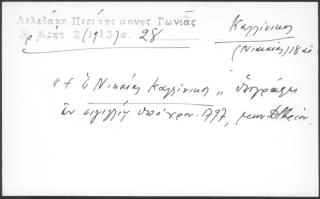 Λελεδάκη Περί της μονης Γωνιᾶς
Χ. Κρήτ 2 (1913) σ. 28
Καλλίνικος
(Νικαίας) 18 αι
"+ ὁ Νικαίας Καλλίνικος" ὑπογράφει
ἐν σιγιλλίῳ ὑπό χρον. 1797,